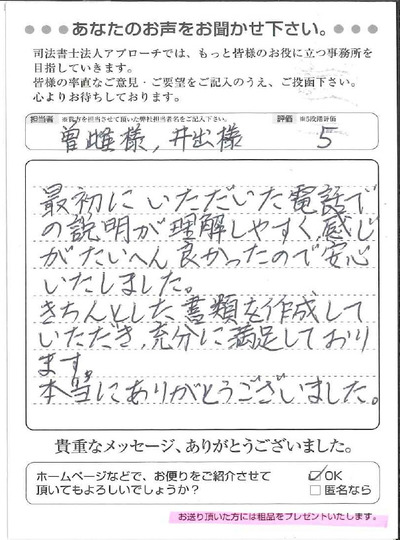 ●●●あなたのお声をお聞かせ下さい。●●●
司法書士法人アプローチでは、もっと皆様のお役に立つ事務所を
目指していきます。
皆様の率直なご意見・ご要望をご記入のうえ、ご投函下さい。
心よりお待ちしております。
担当者 ※貴方を担当させて頂いた弊社担当者名をご記入下さい。 評価 ※5段階評価
曽雌様, 井出様 5
最初にいただいた電話で
の説明が理解しやすく、感じ
がたいへん良かったので安心
いたしました。
きちんとした書類を作成して
いただき、充分に満足しており
ます。
本当にありがとうございました。
貴重なメッセージ、ありがとうございました。
ホームページなどで、お便りをご紹介させて
頂いてもよろしいでしょうか?
☑OK
□匿名なら
お送り頂いた方には粗品をプレゼントいたします。